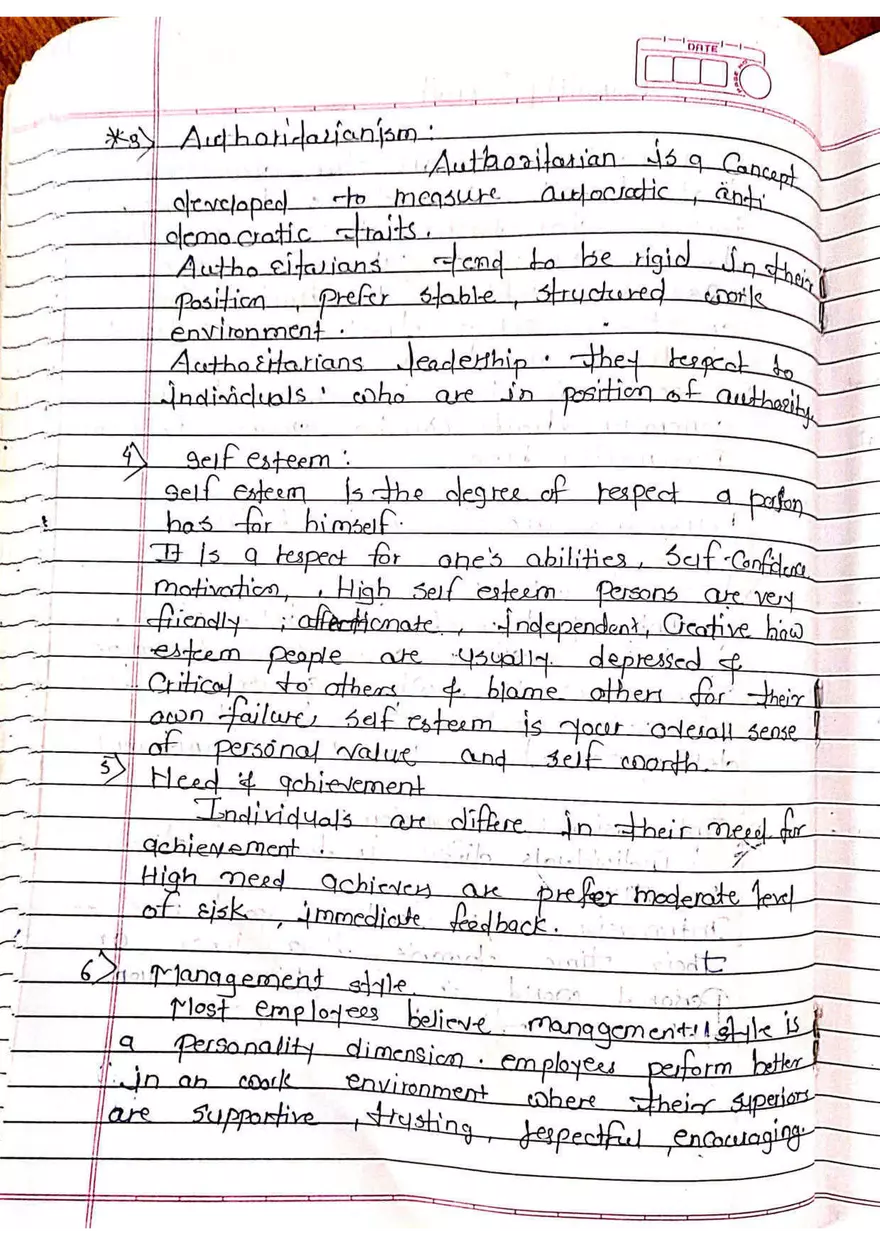 DATE
*3) Authoridarianism :
Authoritarian is a Concept
developed to measure autocratic, anti
democratic traits.
Authoritarians tend to be rigid in their
position, prefer stable, structured work
environment.
Authoritarians leadership. they respect to
individuals. who are in position of authority.
4) self esteem :
self esteem is the degree of respect a person
has for himself.
It is a respect for one's abilities, self-confidence
motivation, High self esteem persons are very
friendly, affectionate, independent, Creative how
esteem people are usually depressed &
Critical to others & blame others for their
own failure, self esteem is your overall sense
of personal value and self worth.
5) Need of achievement
Individual's are differe in their need for
achievement.
High need achievers are prefer moderate level
of risk, immediate feedback.
6) Management style
Most employees believe management style is
a personality dimension. employees perform better
in an work environment where their superiors
are supportive, trusting, respectful, encouraging.